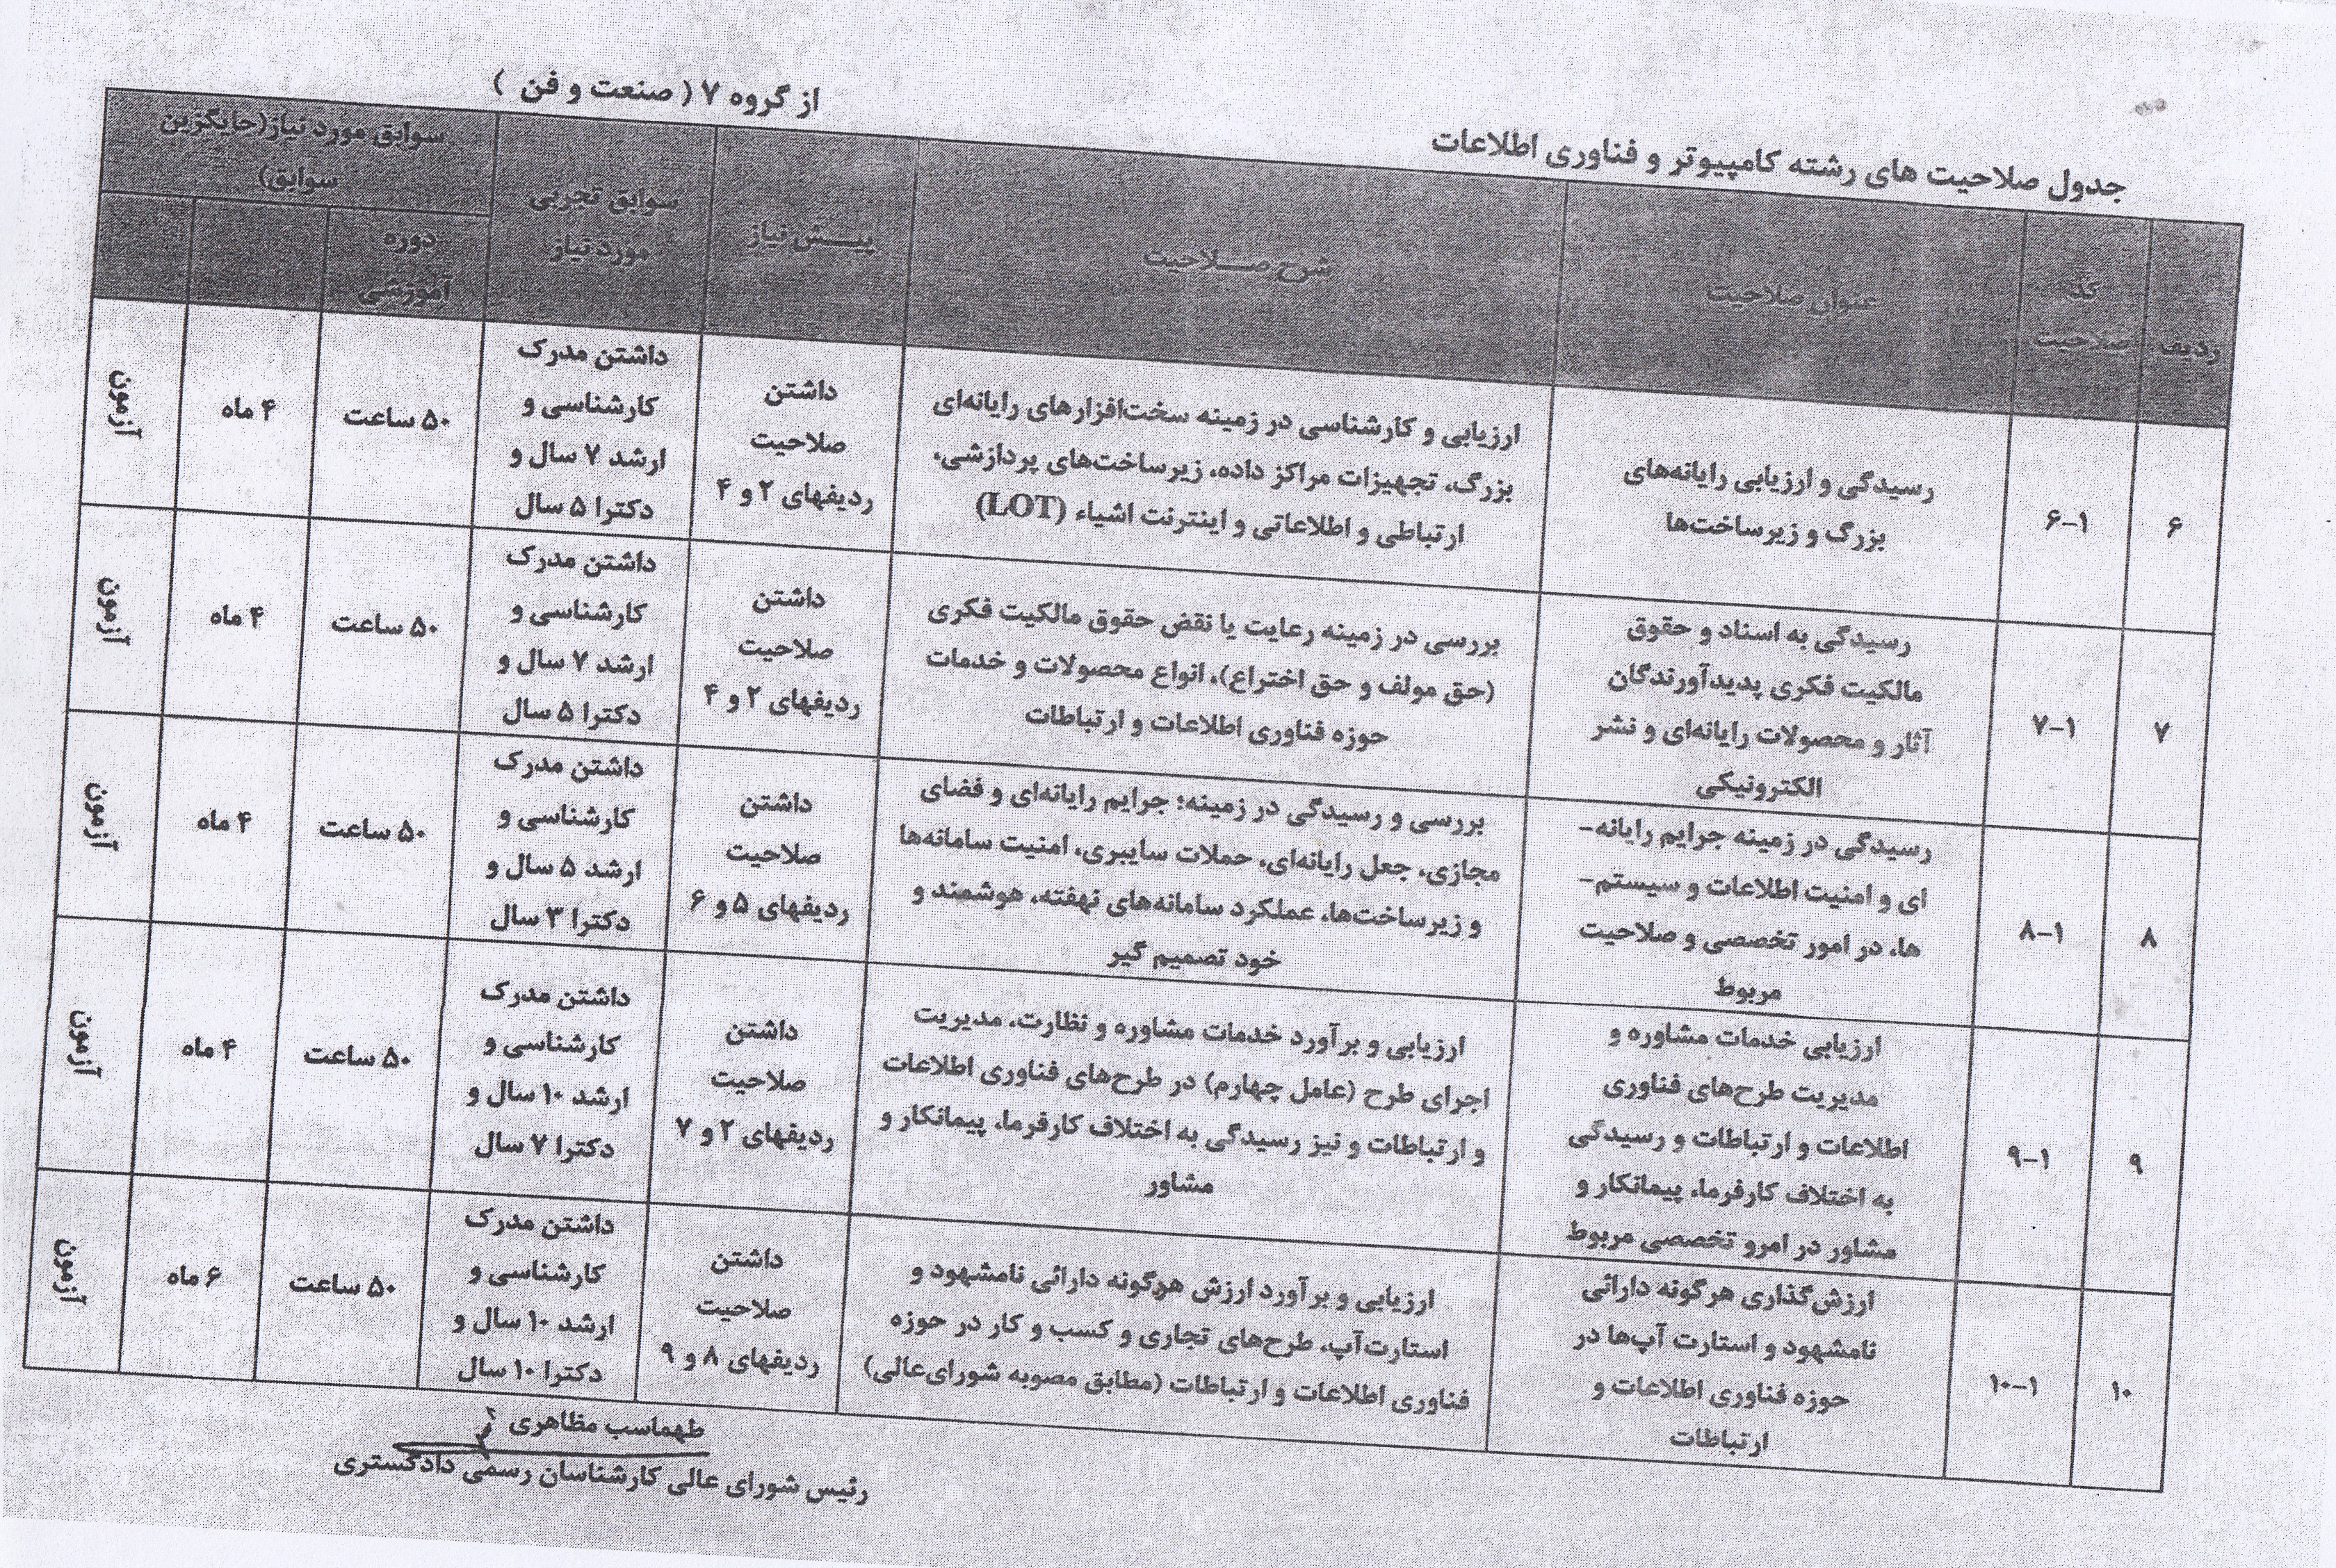 جدول صلاحیت های رشته کامپیوتر و فناوری اطلاعات
از گروه ۷ ( صنعت و فن )
ردیف
کد
صلاحیت
عنوان صلاحیت
شرح صــــلاحیت
پیـــــش نیاز
سوابق تجربی
مورد نیاز
سوابق مورد نیاز(جایگزین
سوابق)
دوره
آموزشی
۶
۶-۱
رسیدگی و ارزیابی رایانه‌های
بزرگ و زیرساخت‌ها
ارزیابی و کارشناسی در زمینه سخت‌افزارهای رایانه‌ای
بزرگ، تجهیزات مراکز داده، زیرساخت‌های پردازشی،
ارتباطی و اطلاعاتی و اینترنت اشیاء (LOT)
داشتن
صلاحیت
ردیفهای ۲ و ۴
داشتن مدرک
کارشناسی و
ارشد ۷ سال و
دکترا ۵ سال
۵۰ ساعت
۴ ماه
آزمون
۷
۷-۱
رسیدگی به اسناد و حقوق
مالکیت فکری پدیدآورندگان
آثار و محصولات رایانه‌ای و نشر
الکترونیکی
بررسی در زمینه رعایت یا نقض حقوق مالکیت فکری
(حق مولف و حق اختراع)، انواع محصولات و خدمات
حوزه فناوری اطلاعات و ارتباطات
داشتن
صلاحیت
ردیفهای ۲ و ۴
داشتن مدرک
کارشناسی و
ارشد ۷ سال و
دکترا ۵ سال
۵۰ ساعت
۴ ماه
آزمون
۸
۸-۱
رسیدگی در زمینه جرایم رایانه-
ای و امنیت اطلاعات و سیستم-
ها، در امور تخصصی و صلاحیت
مربوط
بررسی و رسیدگی در زمینه؛ جرایم رایانه‌ای و فضای
مجازی، جعل رایانه‌ای، حملات سایبری، امنیت سامانه‌ها
و زیرساخت‌ها، عملکرد سامانه‌های نهفته، هوشمند و
خود تصمیم گیر
داشتن
صلاحیت
ردیفهای ۵ و ۶
داشتن مدرک
کارشناسی و
ارشد ۵ سال و
دکترا ۳ سال
۵۰ ساعت
۴ ماه
آزمون
۹
۹-۱
ارزیابی خدمات مشاوره و
مدیریت طرح‌های فناوری
اطلاعات و ارتباطات و رسیدگی
به اختلاف کارفرما، پیمانکار و
مشاور در امرو تخصصی مربوط
ارزیابی و برآورد خدمات مشاوره و نظارت، مدیریت
اجرای طرح (عامل چهارم) در طرح‌های فناوری اطلاعات
و ارتباطات و نیز رسیدگی به اختلاف کارفرما، پیمانکار و
مشاور
داشتن
صلاحیت
ردیفهای ۲ و ۷
داشتن مدرک
کارشناسی و
ارشد ۱۰ سال و
دکترا ۷ سال
۵۰ ساعت
۴ ماه
آزمون
۱۰
۱۰-۱
ارزش‌گذاری هرگونه دارائی
نامشهود و استارت آپ‌ها در
حوزه فناوری اطلاعات و
ارتباطات
ارزیابی و برآورد ارزش هرگونه دارائی نامشهود و
استارت‌آپ، طرح‌های تجاری و کسب و کار در حوزه
فناوری اطلاعات و ارتباطات (مطابق مصوبه شورای‌عالی)
داشتن
صلاحیت
ردیفهای ۸ و ۹
داشتن مدرک
کارشناسی و
ارشد ۱۰ سال و
دکترا ۱۰ سال
۵۰ ساعت
۶ ماه
آزمون
طهماسب مظاهری
رئیس شورای عالی کارشناسان رسمی دادگستری